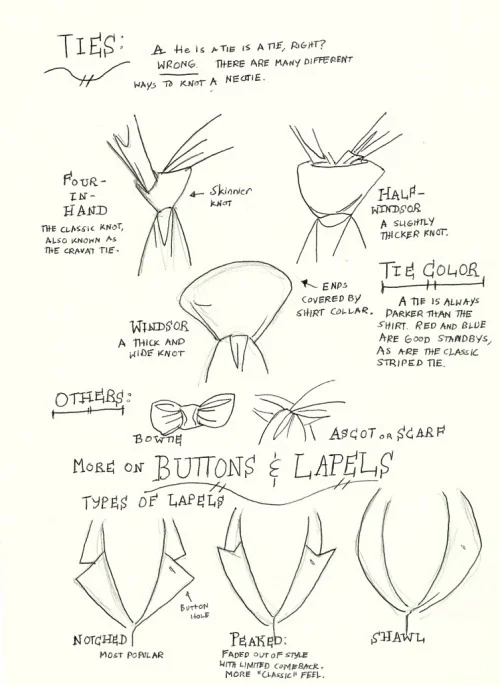 TIES:
A He is A TIE IS A TIE, RIGHT?
WRONG. THERE ARE MANY DIFFERENT
WAYS TO KNOT A NECTIE.
FOUR-
IN-
HAND
THE CLASSIC KNOT,
ALSO KNOWN AS
THE CRAVAT TIE.
Skinnier
KNOT
HALF-
WINDSOR
A SLIGHTLY
THICKER KNOT.
WINDSOR
A THICK AND
WIDE KNOT
ENDS
COVERED BY
SHIRT COLLAR.
TIE COLOR
A TIE IS ALWAYS
DARKER THAN THE
SHIRT. RED AND BLUE
ARE GOOD STANDBYS,
AS ARE THE CLASSIC
STRIPED TIE.
OTHERS:
BOWTIE
ASCOT OR SCARF
MORE ON BUTTONS & LAPELS
TYPES OF LAPELS
BUTTON
HOLE
NOTCHED
MOST POPULAR
PEAKED:
FADED OUT OF STYLE
WITH LIMITED COMEBACK.
MORE "CLASSIC" FEEL.
SHAWL